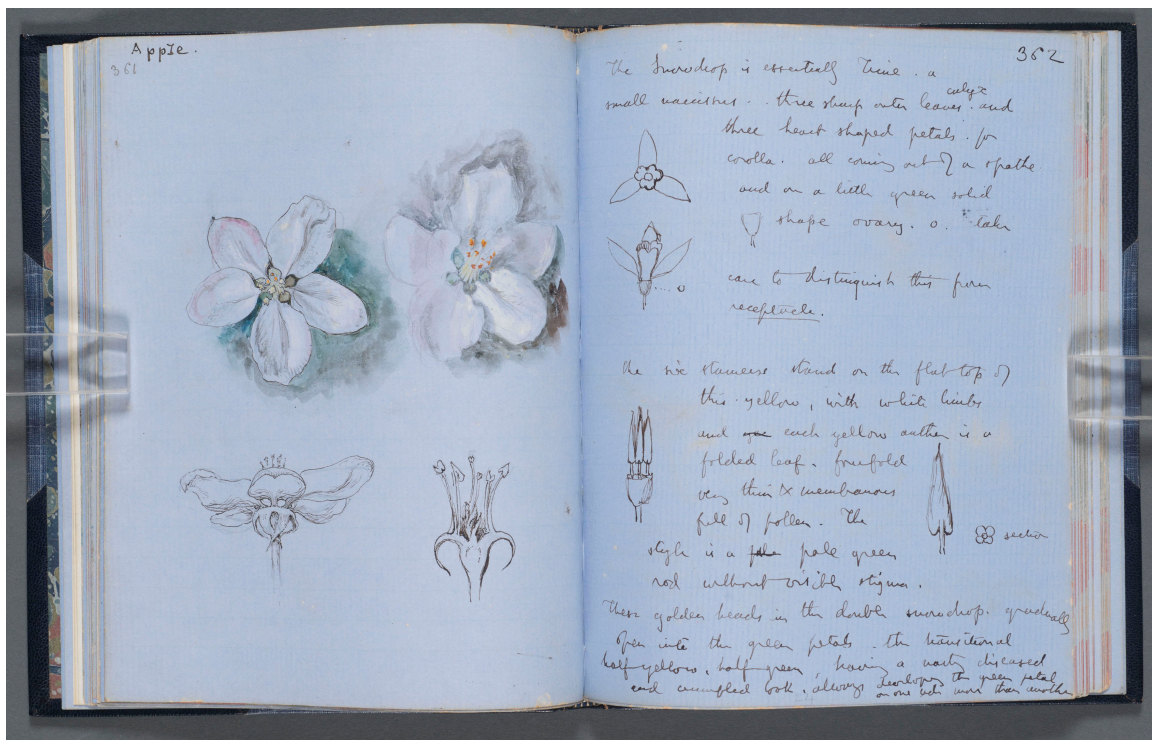 Apple.
361
362
The Snowdrop is essentially Trine. a
small narcissus. three sharp outer leaves. and
calyx
three heart shaped petals. for
corolla. all coming out of a spathe
and on a little green solid
shape ovary. o. take
care to distinguish this from
receptacle.
o
The six stamens stand on the flat top of
this. yellow, with white limbs
and each yellow anther is a
folded leaf. fourfold
very thin & membranous
full of pollen. The
section
style is a pale green
rod without visible stigma.
These golden heads in the double snowdrop. gradually
open into the green petals. the transitional
half yellow, half green having a warty diseased
and crumpled look. always developing the green petal
on one side more than another